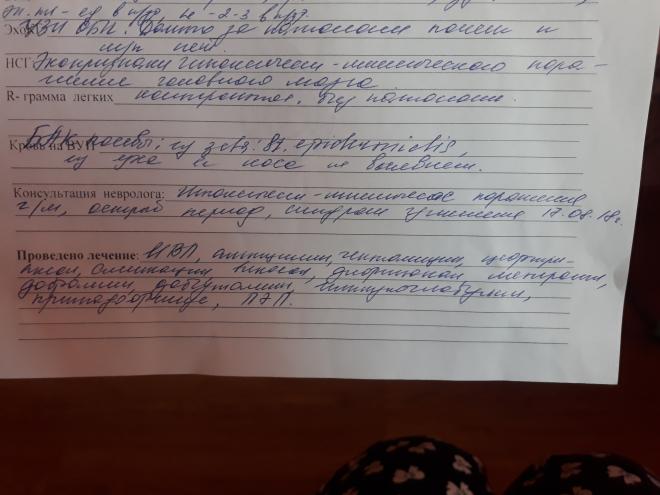 эп. кл - ед в п/зр, Le -2-3 в п/зр.
Эхо УЗИ ОБП: Данных за патологию почек и
н/п нет.
НСГ Эхопризнаки гипоксически-ишемического пора-
жения головного мозга
R- грамма легких контрастная, без патологии.
Кровь на ВУИ БАК посевы: из зева: St. epidermidis,
из уха и носа не выявлен.
Консультация невролога: Гипоксически-ишемическое поражение
г/м, острый период, синдром угнетения 17.08.18г.
Проведено лечение: ИВЛ, ампициллин, гентамицин, цефтри-
аксон, амикацин, флуконазол, метрогил,
дофамин, добутамин, иммуноглобулин,
ПЭП.